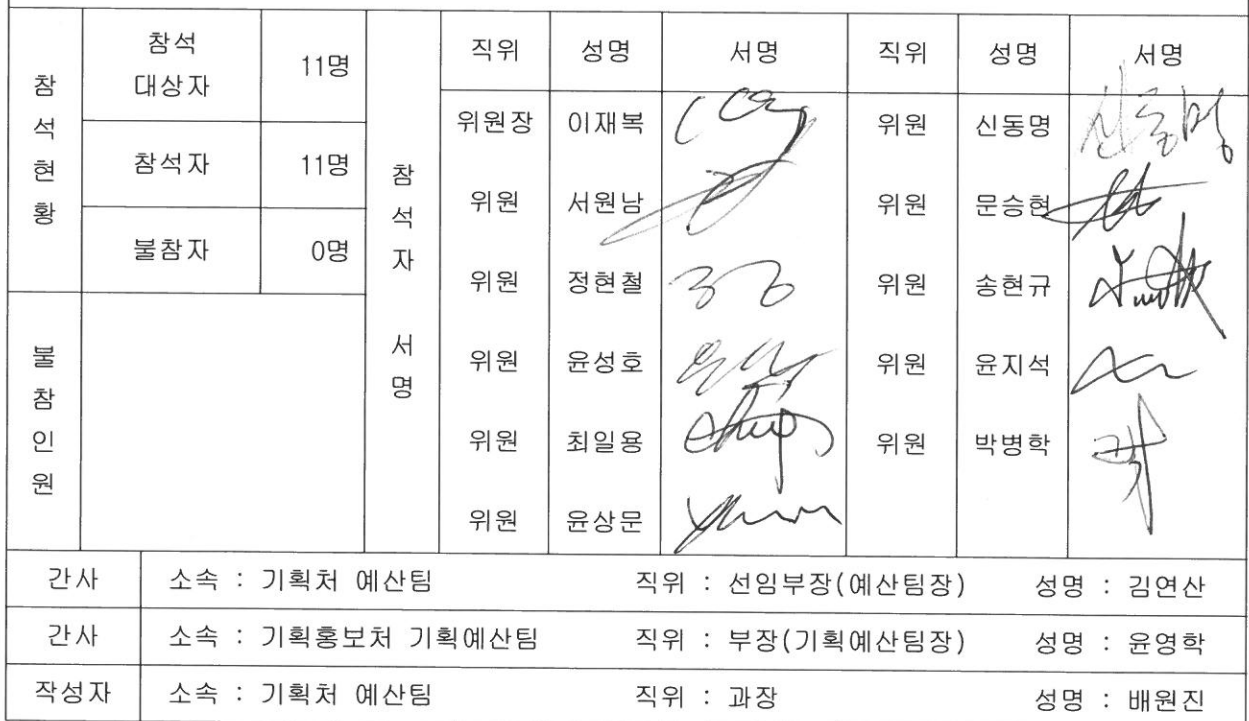 참석현황
참석
대상자
11명
참석자
11명
불참자
0명
불참인원
참석자 서명
직위 성명 서명 직위 성명 서명
위원장 이재복 위원 신동명 신동명
위원 서원남 위원 문승현
위원 정현철 위원 송현규
위원 윤성호 위원 윤지석
위원 최일용 위원 박병학
위원 윤상문
간사 소속 : 기획처 예산팀 직위 : 선임부장(예산팀장) 성명 : 김연산
간사 소속 : 기획홍보처 기획예산팀 직위 : 부장(기획예산팀장) 성명 : 윤영학
작성자 소속 : 기획처 예산팀 직위 : 과장 성명 : 배원진